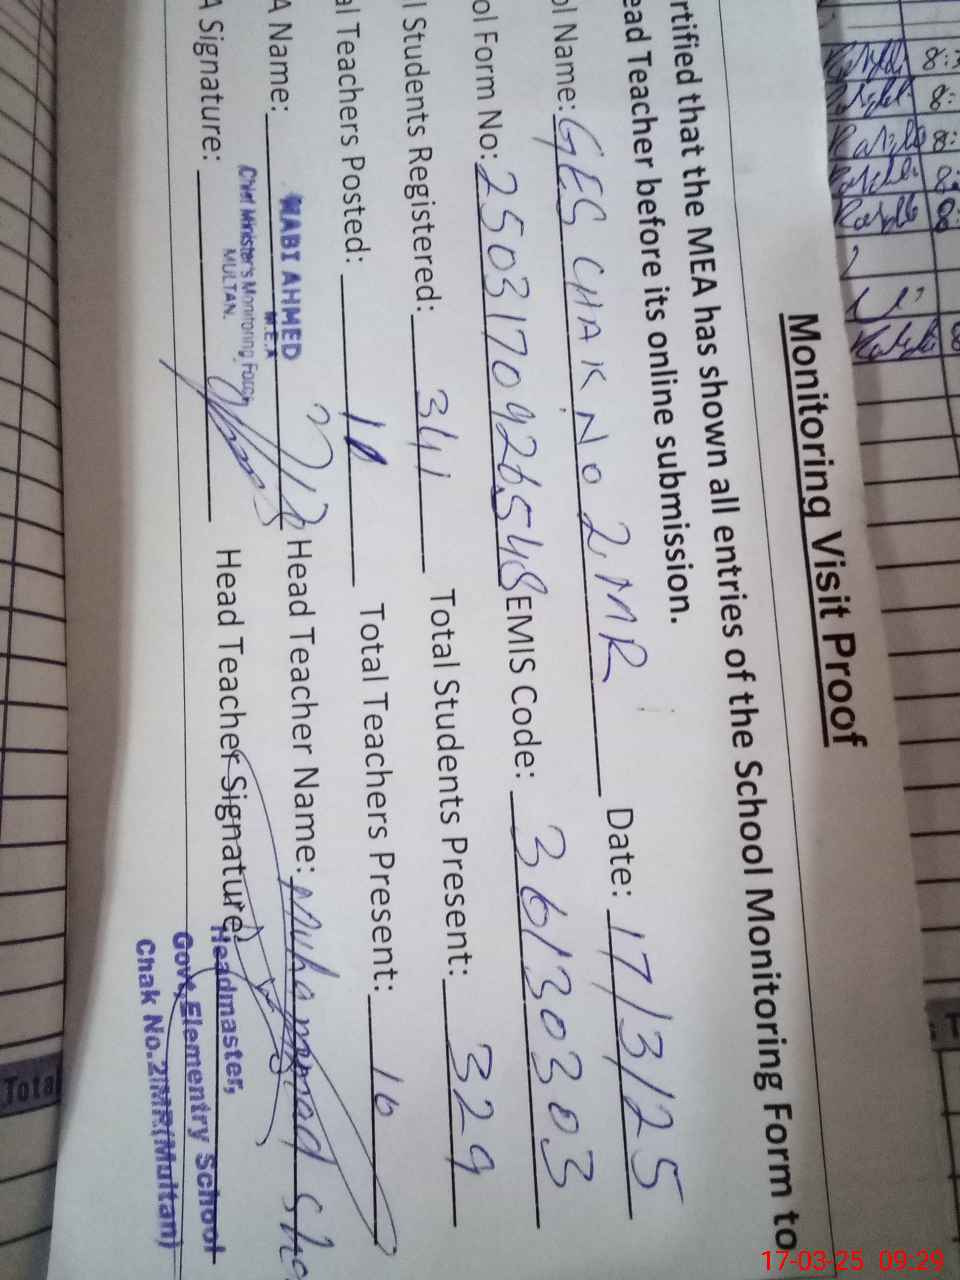 Monitoring Visit Proof
rtified that the MEA has shown all entries of the School Monitoring Form to
ead Teacher before its online submission.
ol Name: GES CHAK No 2 MR Date: 17/3/25
ol Form No: 25031709265 48 EMIS Code: 36130303
l Students Registered: 341 Total Students Present: 329
al Teachers Posted: Total Teachers Present: 10
A Name: NABI AHMED Head Teacher Name: Muhammad
M.E.A
A Signature: Head Teacher Signature:
Chief Minister's Monitoring Force
MULTAN.
Headmaster,
Govt, Elementry School
Chak No.2/MR(Multan)
Total
17-03-25 09:29